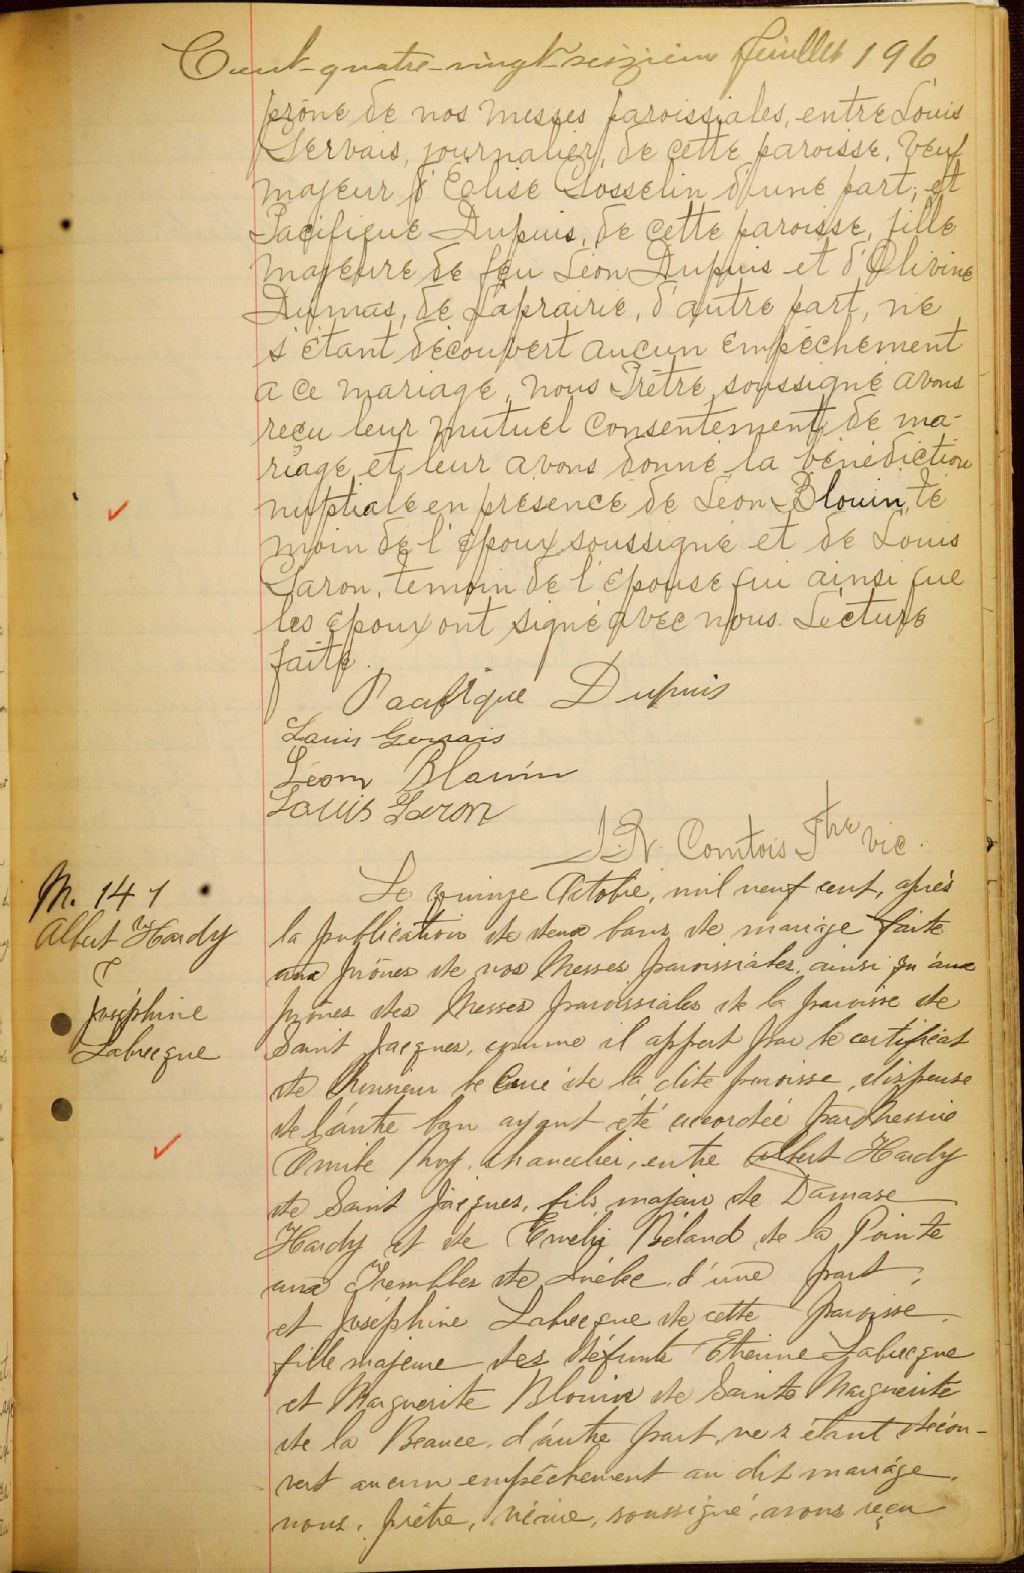 Cent-quatre-vingt-seizième feuillet 196
prône de nos messes paroissiales, entre Louis
Gervais, journalier, de cette paroisse, veuf
majeur d'Eglise Gosselin d'une part, et
Pacifique Dupuis, de cette paroisse, fille
majeure de feu Léon Dupuis et d'Olivine
Dumas, de Laprairie, d'autre part, ne
s'étant découvert aucun empêchement
a ce mariage, nous Prêtre soussigné avons
reçu leur mutuel consentement de ma-
riage et leur avons donné la bénédiction
nuptiale en présence de Léon Blouin, té
moin de l'époux soussigné et de Louis
Garon, témoin de l'épouse qui ainsi que
les époux ont signé avec nous. Lecture
faite.
Pacifique Dupuis
Louis Gervais
Léon Blouin
Louis Garon
J. N. Comtois Ptre vic.
M. 141
Albert Hardy
&
Joséphine
Labrecque
Le quinze Octobre, mil neuf cent, après
la publication de deux bans de mariage faite
aux prônes de nos Messes paroissiales, ainsi qu'aux
prônes des Messes paroissiales de la paroisse de
Saint Jacques, comme il appert par le certificat
de Monsieur le Curé de la dite paroisse, dispense
de l'autre ban ayant été accordée par Messire
Emile Roy, chancelier, entre Albert Hardy
de Saint Jacques, fils majeur de Damase
Hardy et de Emélie Béland de la Pointe
aux Trembles de Québec, d'une part;
et Joséphine Labrecque de cette paroisse,
fille majeure des défunts Etienne Labrecque
et Marguerite Blouin de Sainte Marguerite
de la Beauce, d'autre part, ne s'étant décou-
vert aucun empêchement au dit mariage,
nous, prêtre, vicaire, soussigné, avons reçu